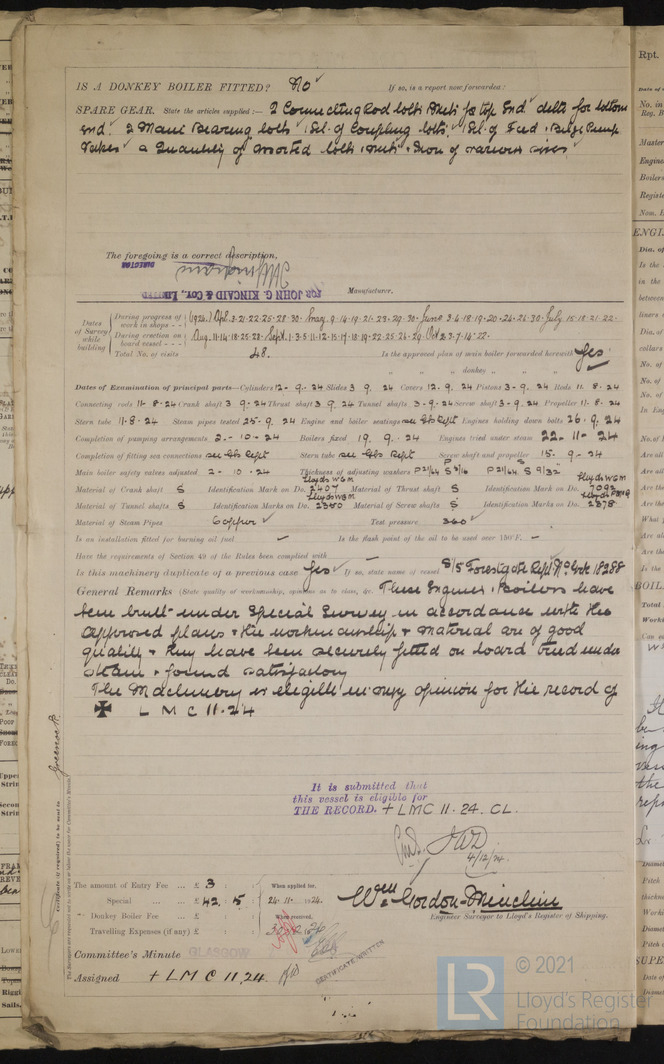 IS A DONKEY BOILER FITTED? No If so, is a report now forwarded:
SPARE GEAR. State the articles supplied:— 2 Connecting Rod bolts & Nuts for top End. ditto for bottom
end. 2 Main Bearing bolts, 1 Set of Coupling bolts. 1 Set of Feed & Bilge Pump
Valves a Quantity of assorted bolts & Nuts & Iron of various sizes
The foregoing is a correct description,
DIRECTOR
FOR JOHN G. KINCAID & COY., LIMITED Manufacturer.
Dates of Survey while building
During progress of work in shops - - (1924.) Apl. 3. 21. 22. 25. 28. 30. May. 9. 14. 19. 21. 23. 29. 30. June 3. 4. 18. 19. 20. 24. 26. 30. July. 15. 18. 21. 22.
During erection on board vessel - - - Aug. 11. 14. 18. 25. 28. Sept. 1. 3. 5. 11. 12. 15. 17. 18. 19. 22. 25. 26. 29. Oct 2. 3. 7. 14. 22.
Total No. of visits 48. Is the approved plan of main boiler forwarded herewith Yes
" " " donkey " " "
Dates of Examination of principal parts—Cylinders 12. 9. 24 Slides 3 9. 24 Covers 12. 9. 24 Pistons 3. 9. 24 Rods 11. 8. 24
Connecting rods 11. 8. 24 Crank shaft 3 9. 24 Thrust shaft 3 9. 24 Tunnel shafts 3. 9. 24 Screw shaft 3. 9. 24 Propeller 11. 8. 24
Stern tube 11. 8. 24 Steam pipes tested 25. 9. 24 Engine and boiler seatings see Gls Rept Engines holding down bolts 26. 9. 24
Completion of pumping arrangements 2. - 10 - 24 Boilers fixed 19. 9. 24 Engines tried under steam 22. 11 - 24
Completion of fitting sea connections see Gls Rept Stern tube see Gls Rept Screw shaft and propeller 15. 9 - 24
Main boiler safety valves adjusted 2 - 10. 24 Thickness of adjusting washers P 21/64 S 3/16 P 21/64 S 9/32
Material of Crank shaft S Identification Mark on Do. Lloyds WGM 2407 Material of Thrust shaft S Identification Mark on Do. Lloyds WGM 7093
Material of Tunnel shafts S Identification Marks on Do. Lloyds WGM 2380 Material of Screw shaft S Identification Marks on Do. 2378
Material of Steam Pipes Copper Test pressure 360
Is an installation fitted for burning oil fuel — Is the flash point of the oil to be used over 150°F. —
Have the requirements of Section 49 of the Rules been complied with —
Is this machinery duplicate of a previous case Yes If so, state name of vessel S/S Forestgate Rept No. Grk 18288
General Remarks (State quality of workmanship, opinions as to class, &c. These Engines & Boilers have
been built under Special Survey in accordance with the
approved plans & the workmanship & material are of good
quality & they have been securely fitted on board tried under
steam & found satisfactory
The Machinery is eligible in my opinion for the record of
✠ L M C 11. 24
It is submitted that
this vessel is eligible for
THE RECORD. + LMC 11. 24. CL.
4/12/24.
Greenock.
Certificate (if required) to be sent to
The amount of Entry Fee ... £ 3 : : When applied for.
Special ... ... £ 42. 15 : 24. 11. 1924.
Donkey Boiler Fee ... £ : : When received.
Travelling Expenses (if any) £ : :
Wm Gordon-Maclean
Engineer Surveyor to Lloyd's Register of Shipping.
Committee's Minute GLASGOW
Assigned + L M C 11. 24.
CERTIFICATE WRITTEN
LR © 2021
Lloyd's Register
Foundation